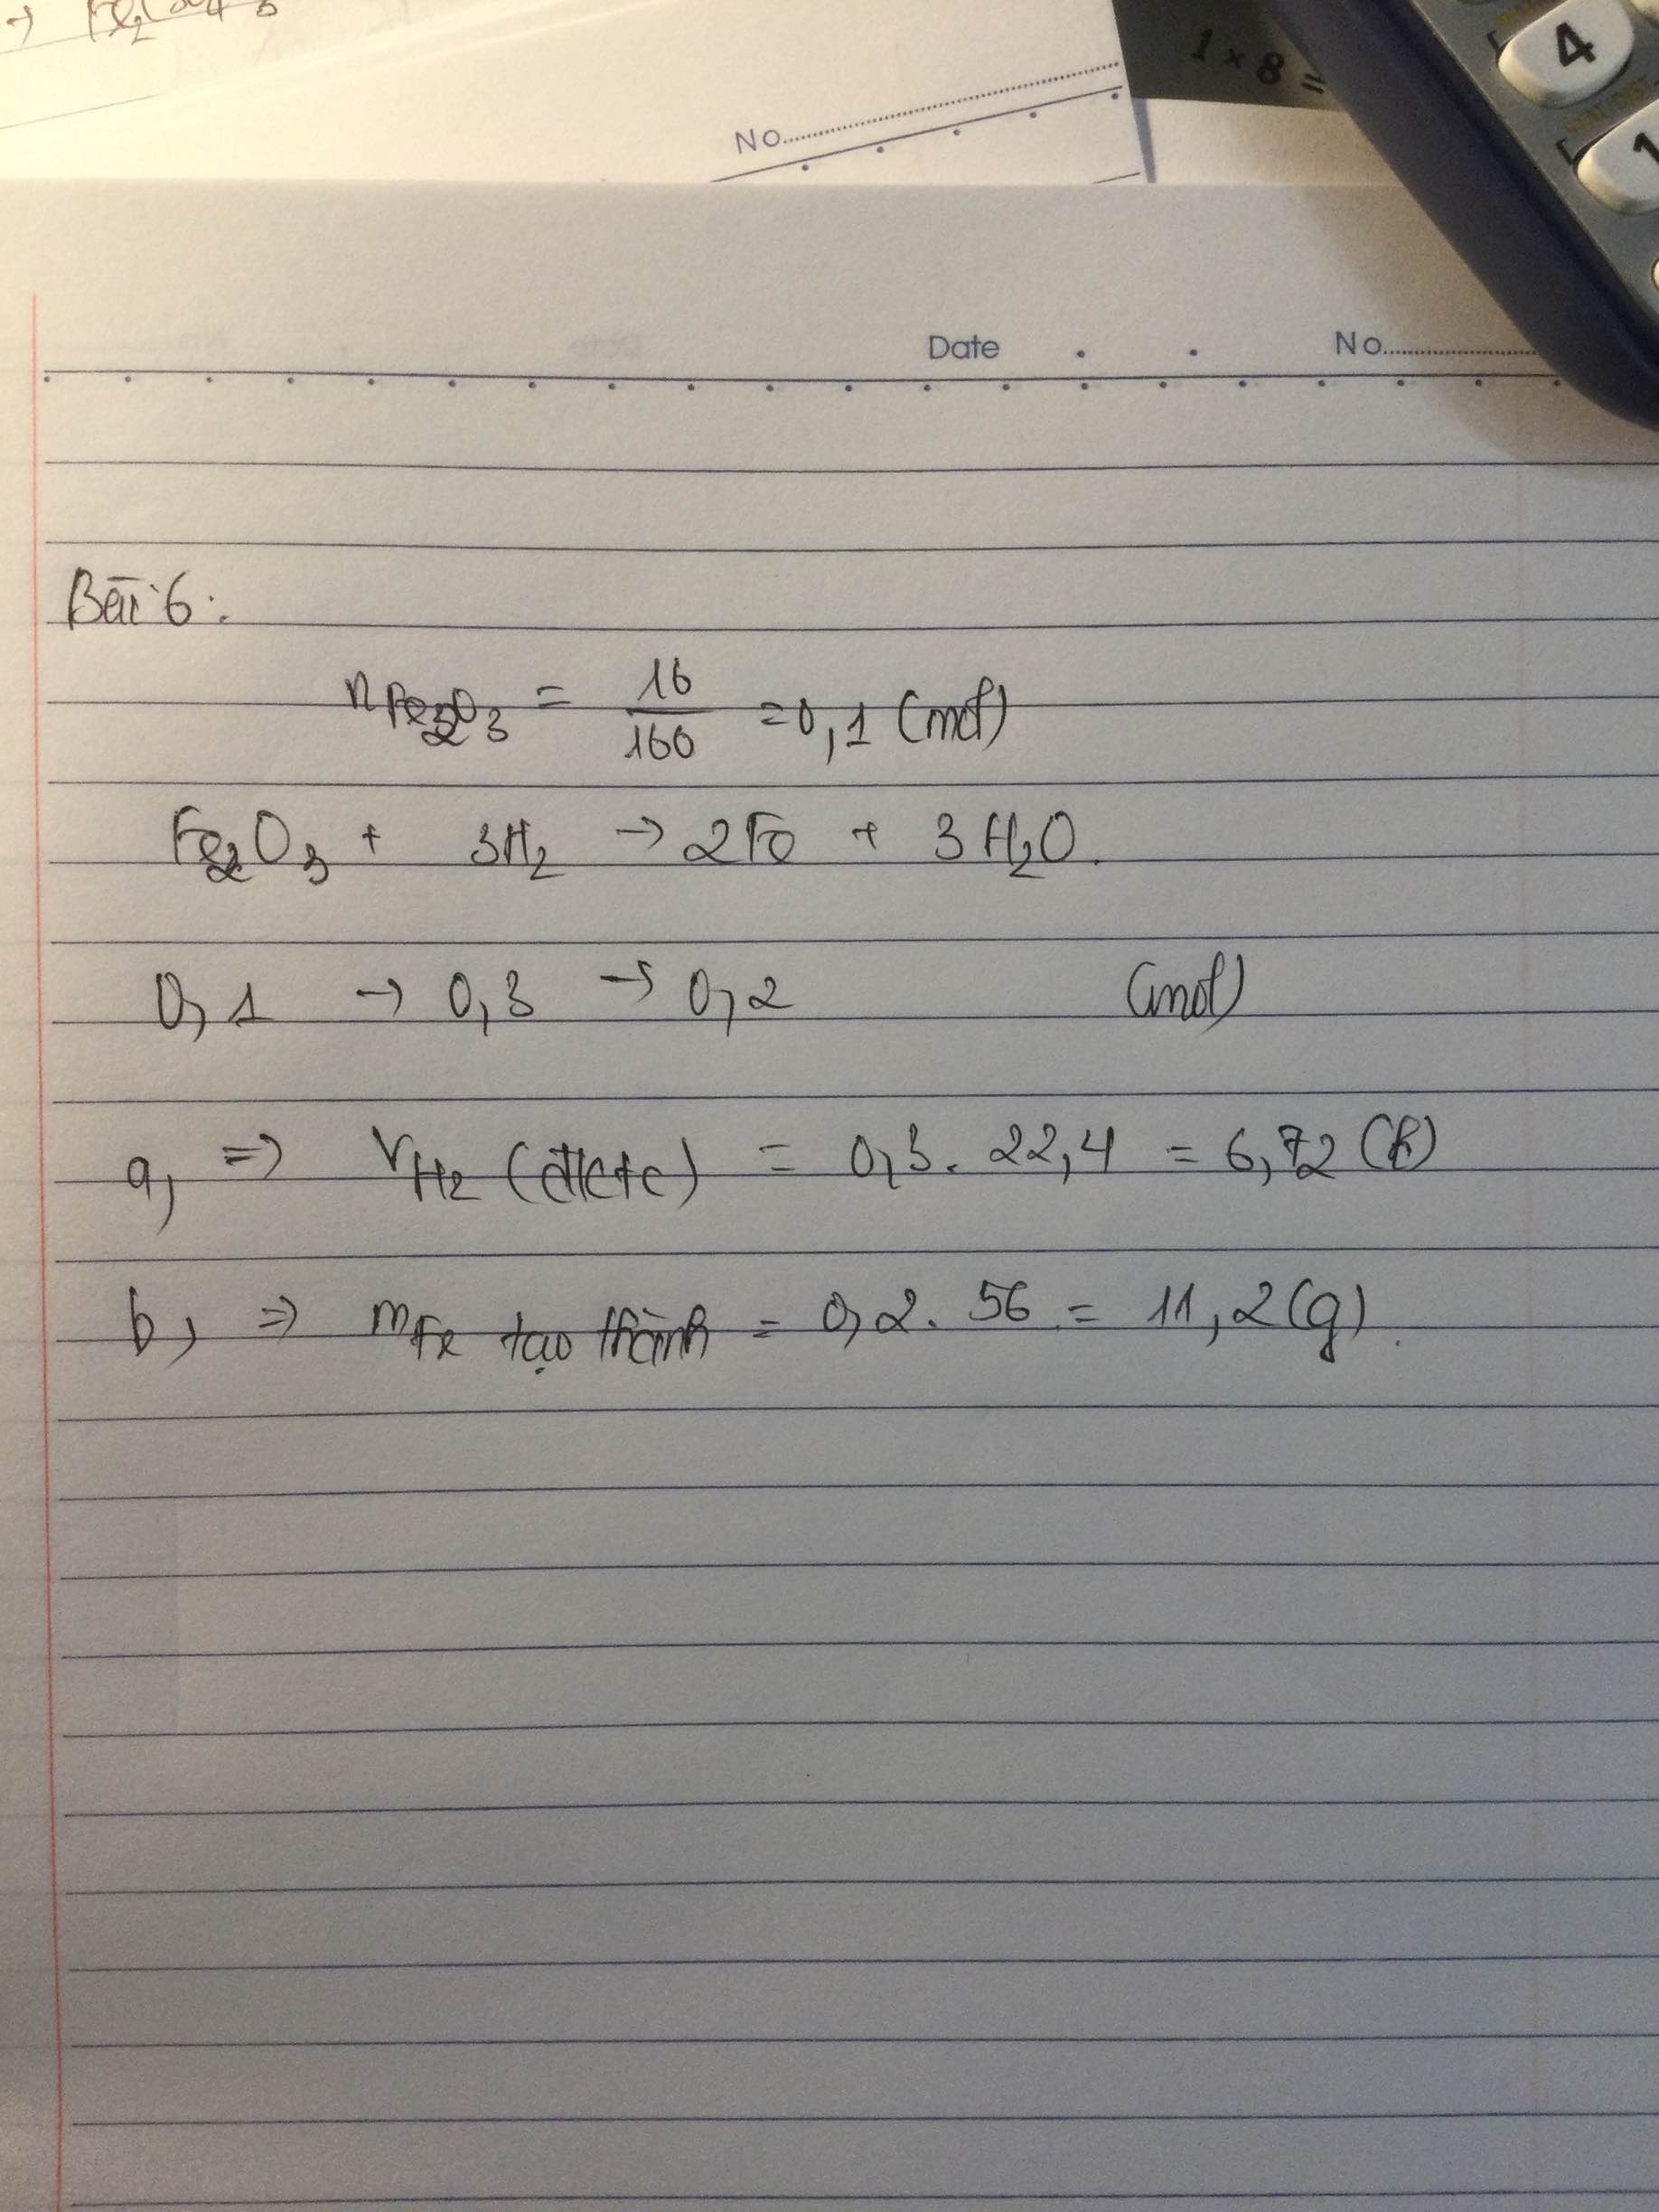 No
1 × 8 =
4
1
Date No
Bài 6:
nFe2O3 = 16/160 = 0,1 (mol)
Fe2O3 + 3H2 → 2Fe + 3H2O.
0,1 → 0,3 → 0,2 (mol)
a, => VH2 (đktc) = 0,3. 22,4 = 6,72 (l)
b, => mFe tạo thành = 0,2. 56 = 11,2(g).